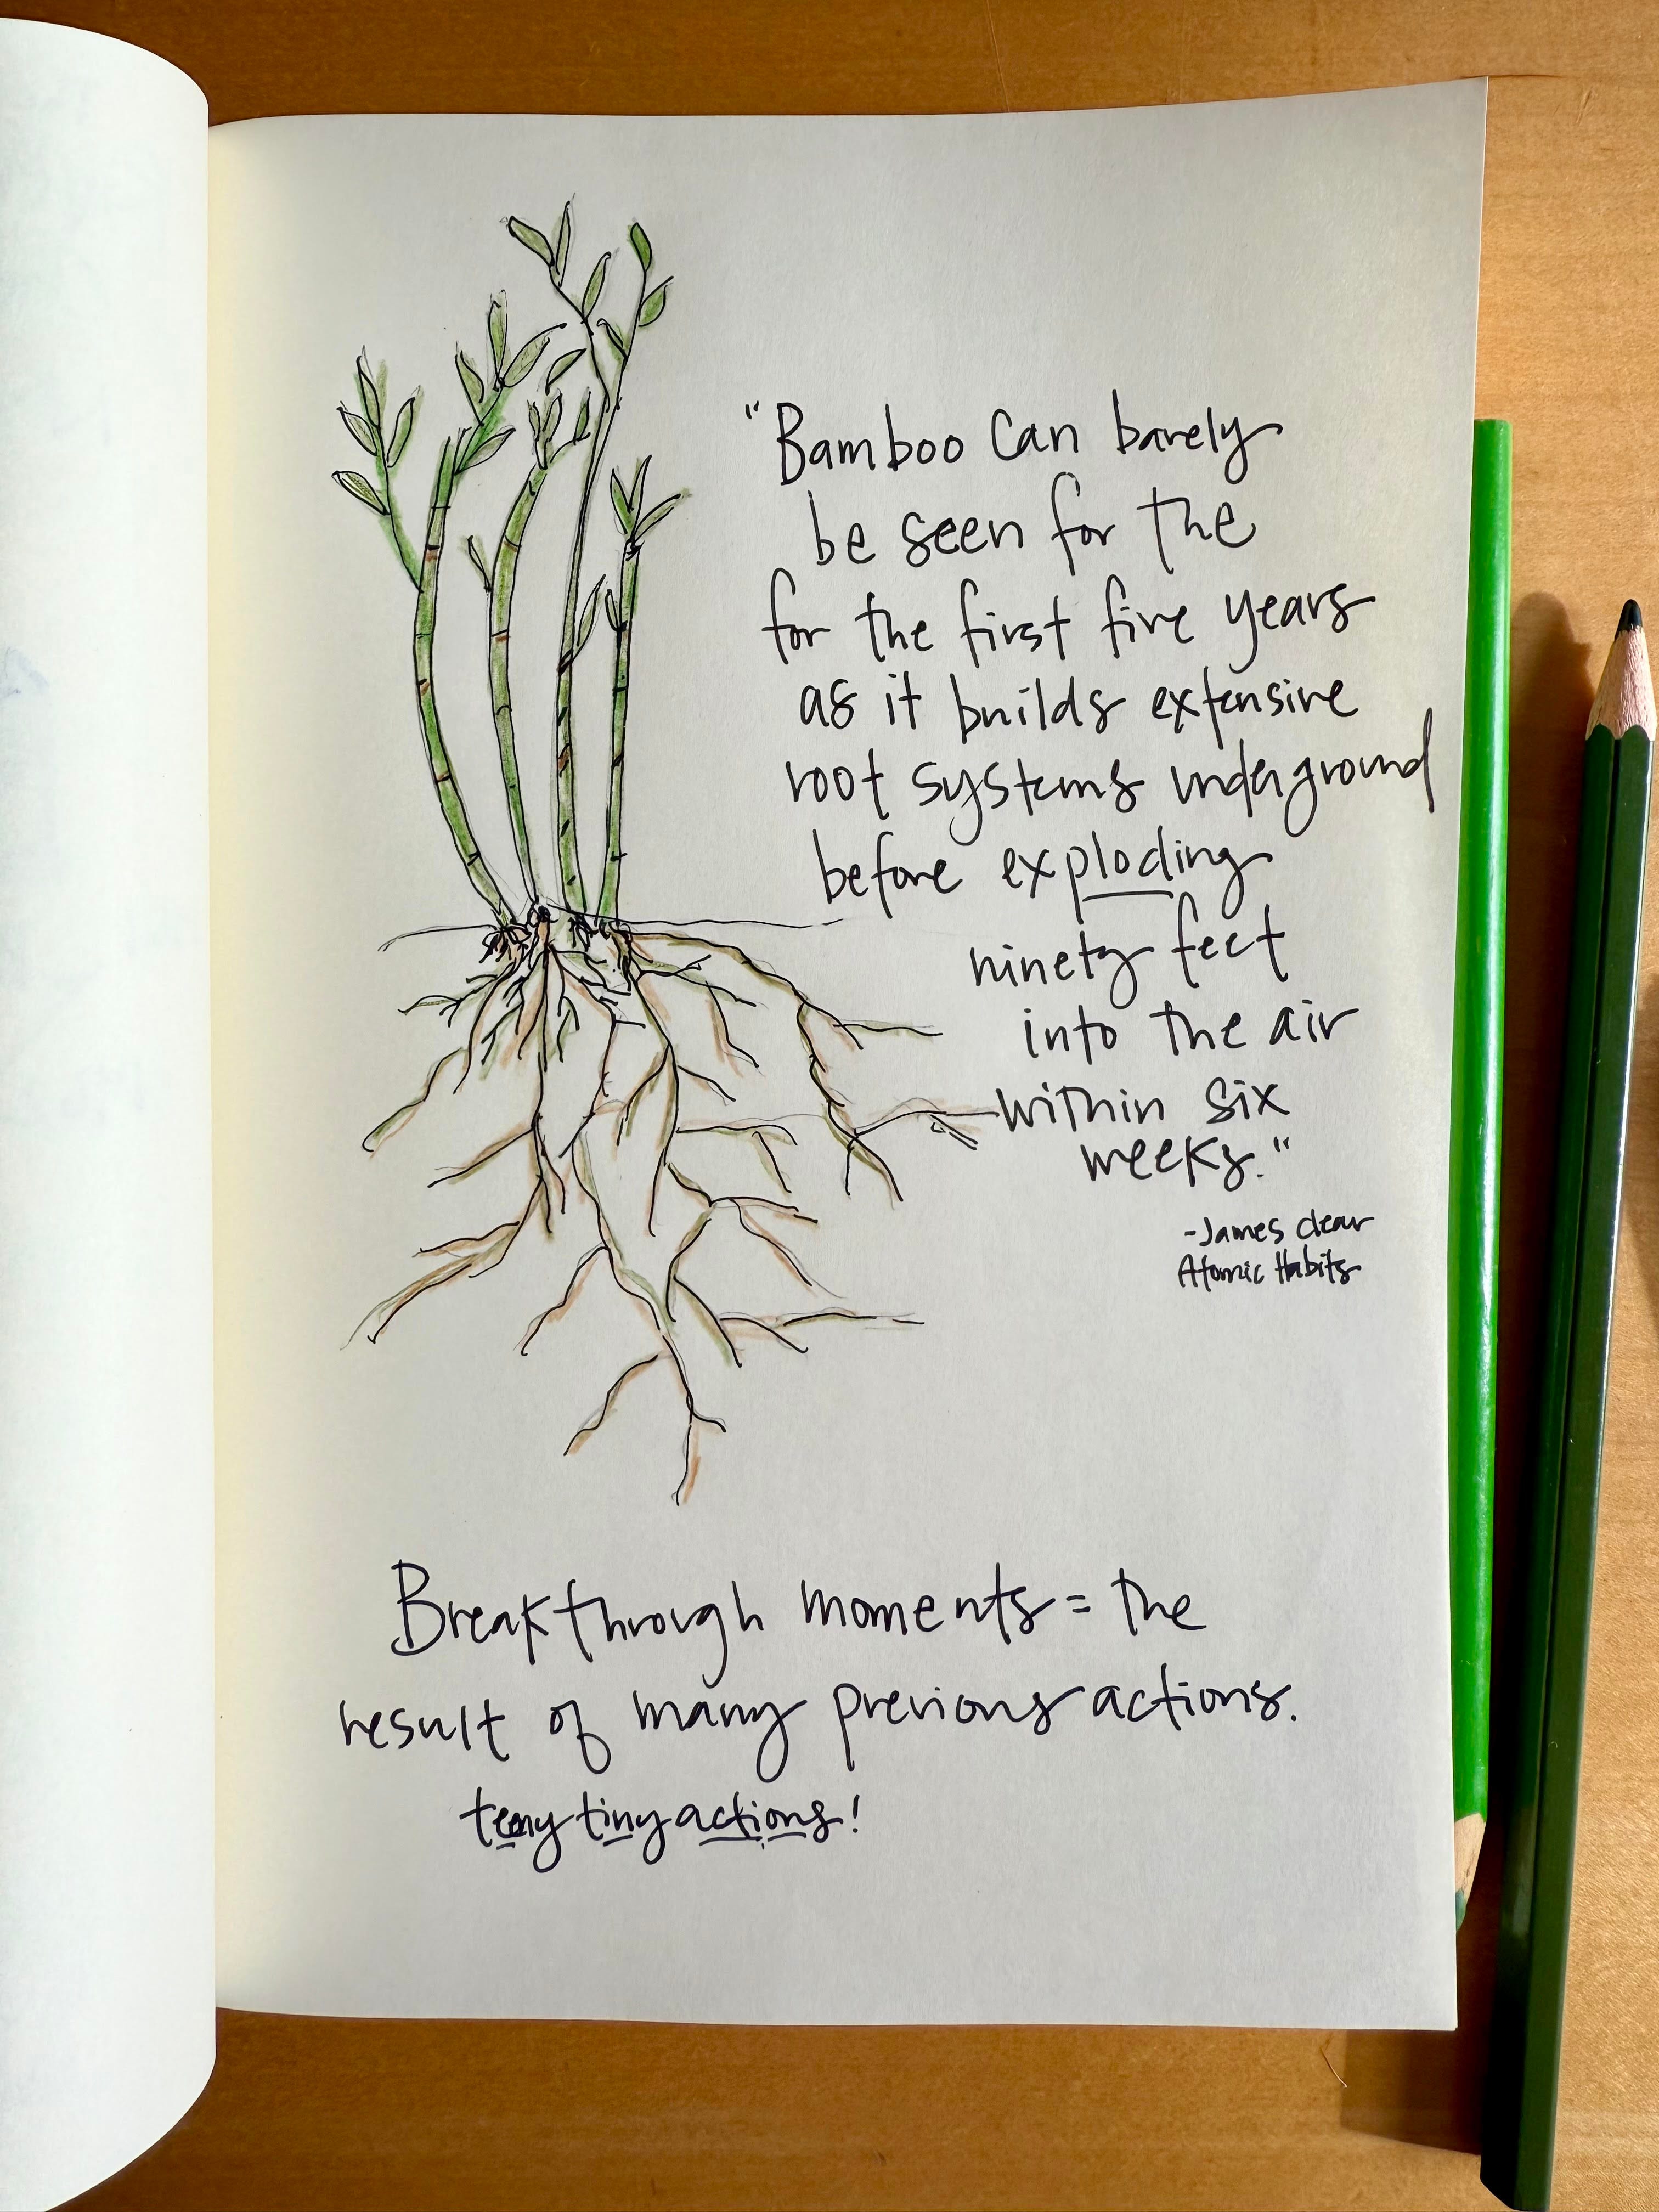 "Bamboo can barely
be seen for the
for the first five years
as it builds extensive
root systems underground
before exploding
ninety feet
into the air
within six
weeks."
-James Clear
Atomic Habits
Breakthrough moments = the
result of many previous actions.
teeny tiny actions!